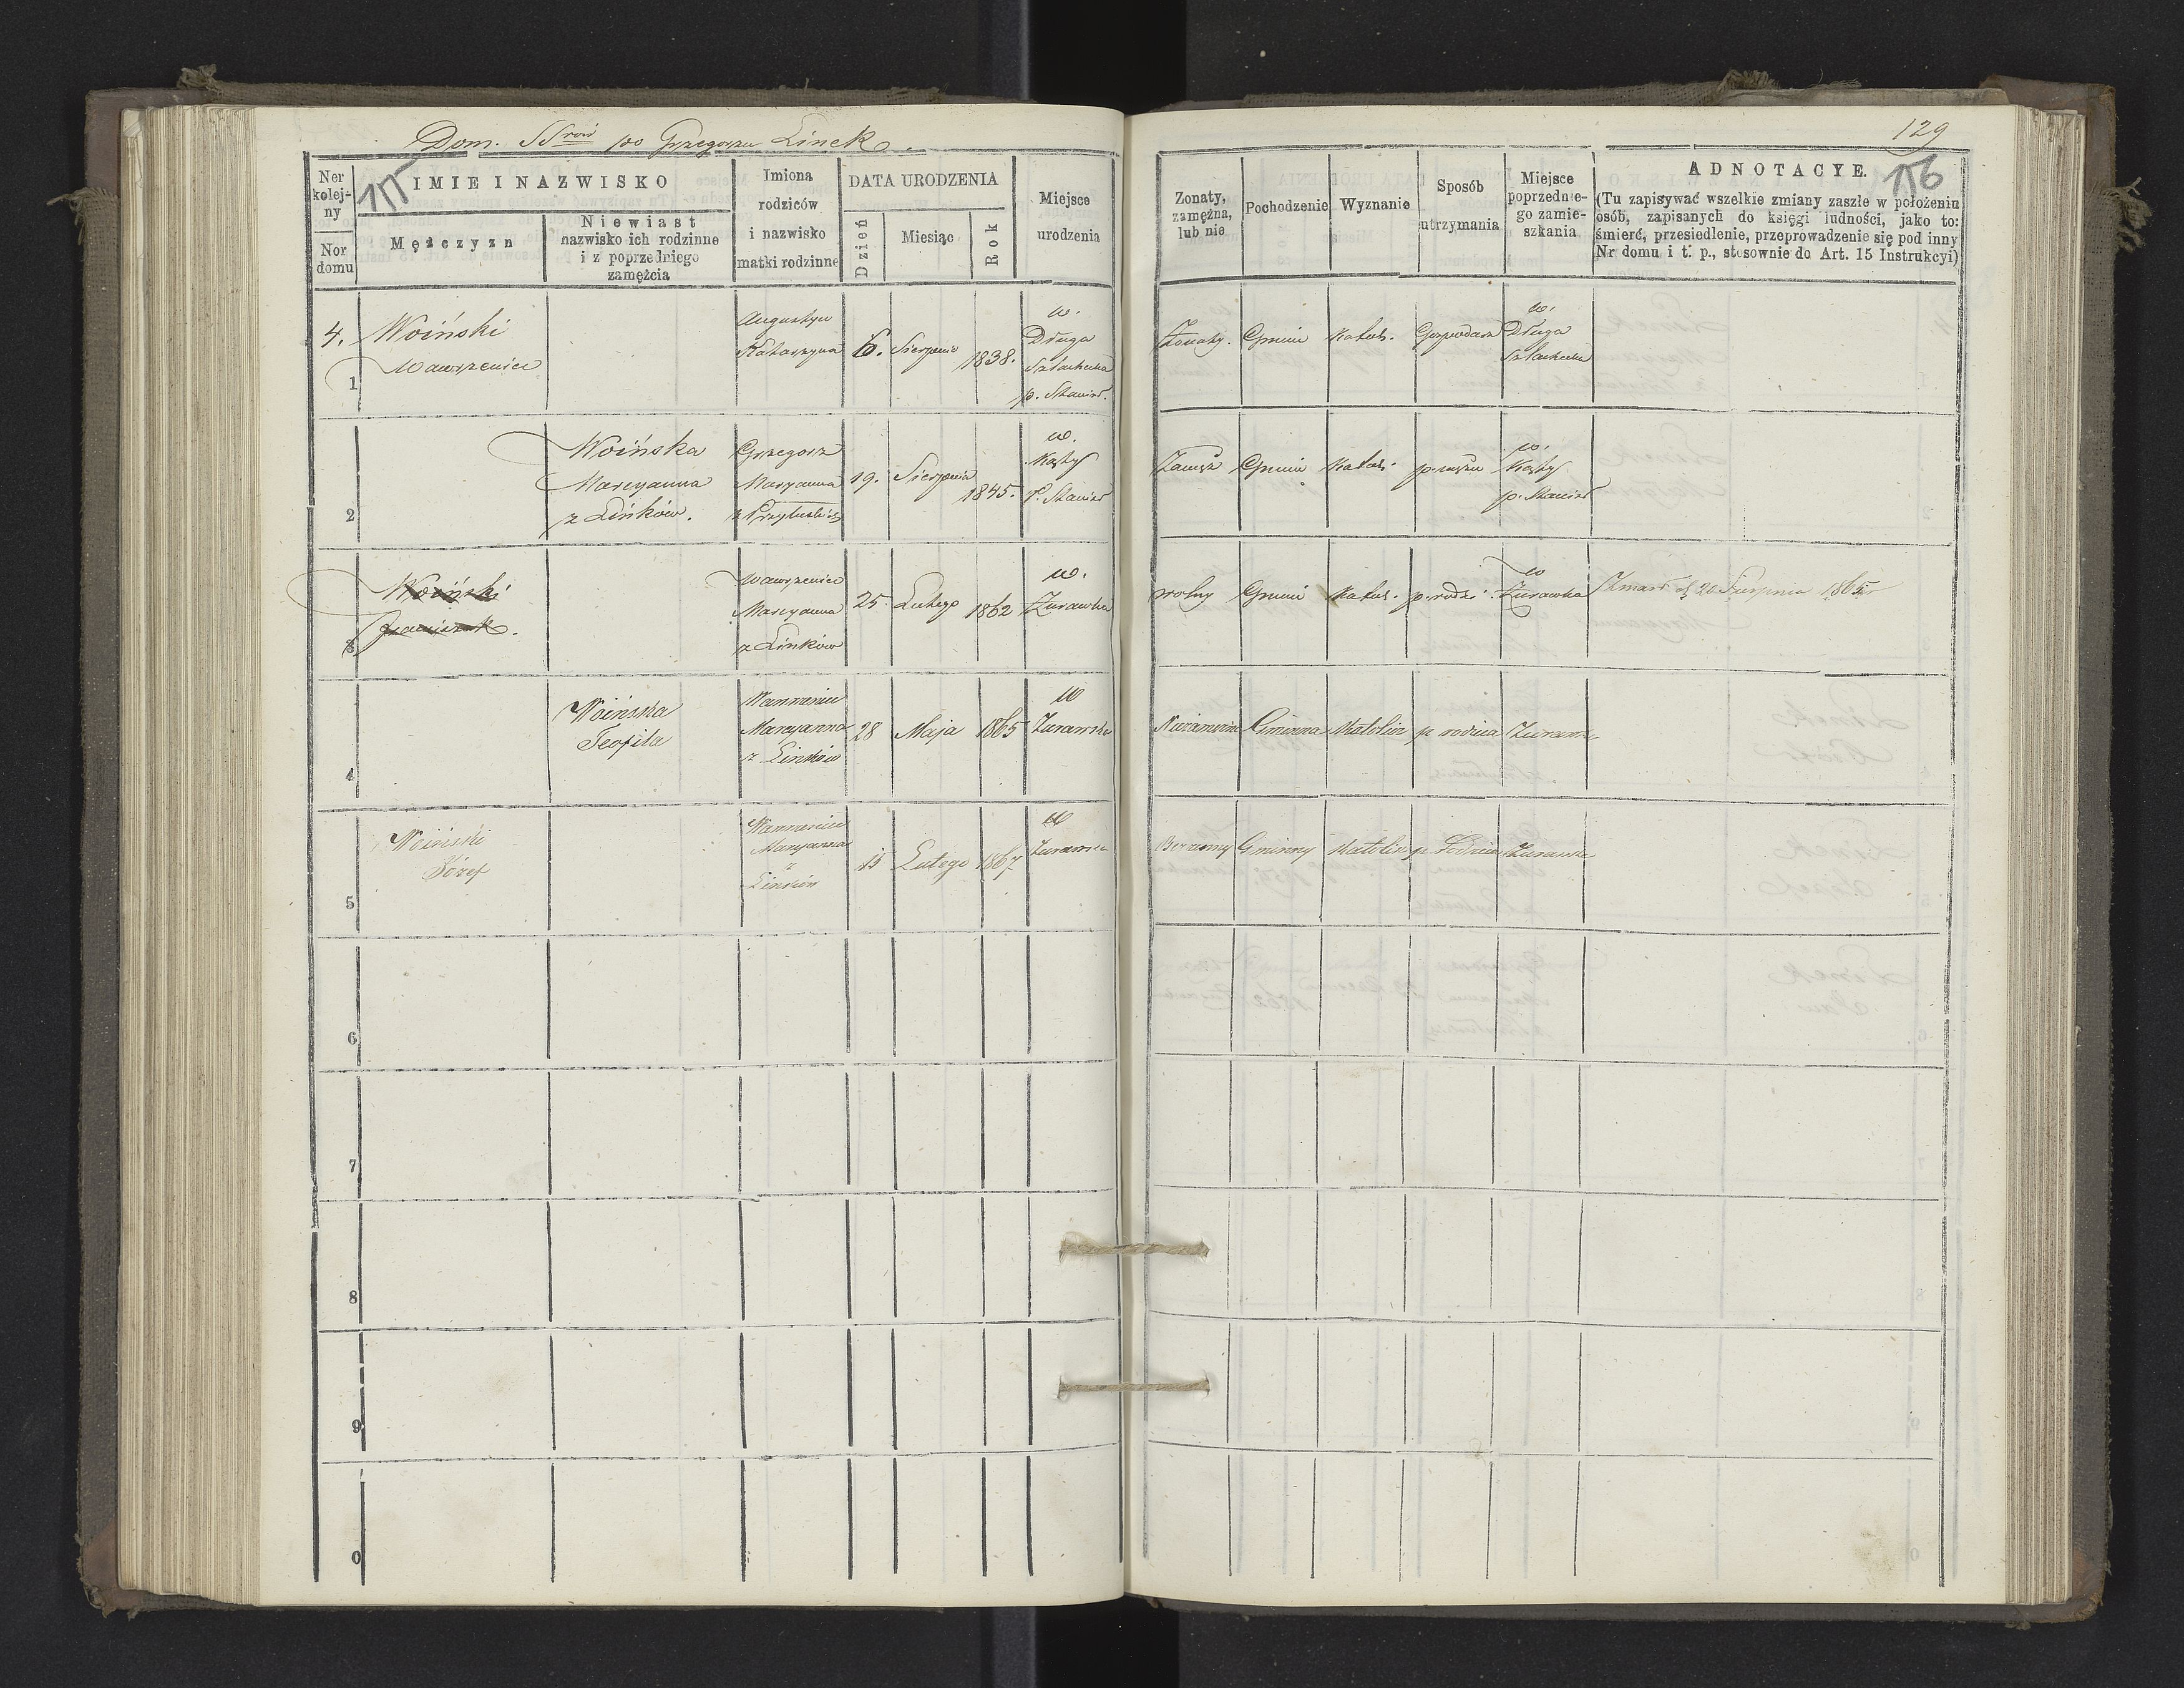 Dom. SSrów po Grzegorzu Linek.
129
155
156
Ner kolejny
Nor domu
IMIE I NAZWISKO
Mężczyzn
Niewiast
nazwisko ich rodzinne
i z poprzedniego
zamężcia
Imiona
rodziców
i nazwisko
matki rodzinne
DATA URODZENIA
Dzień
Miesiąc
Rok
Miejsce
urodzenia
Zonaty,
zamężna,
lub nie
Pochodzenie
Wyznanie
Sposób
utrzymania
Miejsce
poprzednie-
go zamie-
szkania
ADNOTACYE.
(Tu zapisywać wszelkie zmiany zaszłe w położeniu
osób, zapisanych do księgi ludności, jako to:
śmierć, przesiedlenie, przeprowadzenie się pod inny
Nr domu i t. p., stosownie do Art. 15 Instrukcyi)
4.
1
Woiński
Wawrzeniec
Augustyn
Katarzyna
6.
Sierpnia
1838.
w.
Długa
Szlachecka
p. Stanisł.
Żonaty.
Gmin
Katol.
Gospodarz
w.
Długa
Szlachecka
2
Woińska
Marcyanna
z Linków.
Grzegorz
Maryanna
19.
Sierpnia
1845.
w.
Kąty
p. Stanisł
Zamęż
Gmin
Katol.
p. mężu
w.
Kąty
p. Stanisł
3
Woiński
Franciszek.
Wawrzeniec
Marcyanna
z Linków
25.
Lutego
1862
w.
Żurawka
wolny
Gmin
Katol.
p. rodzi.
w
Żurawka
Zmarł d. 20 Sierpnia 1865r
4
Woińska
Teofila
Wawrzeniec
Marcyanna
z Linków
28
Maja
1865
w
Żurawka
Niezamężna
Gminna
Katolic
p rodzica
Żurawka
5
Woiński
Józef
Wawrzeniec
Marcyanna
z
Linków
15
Lutego
1867
w
Żurawka
Bezżenny
Gminny
Katolic
p. Rodzica
Żurawka
6
7
8
9
0